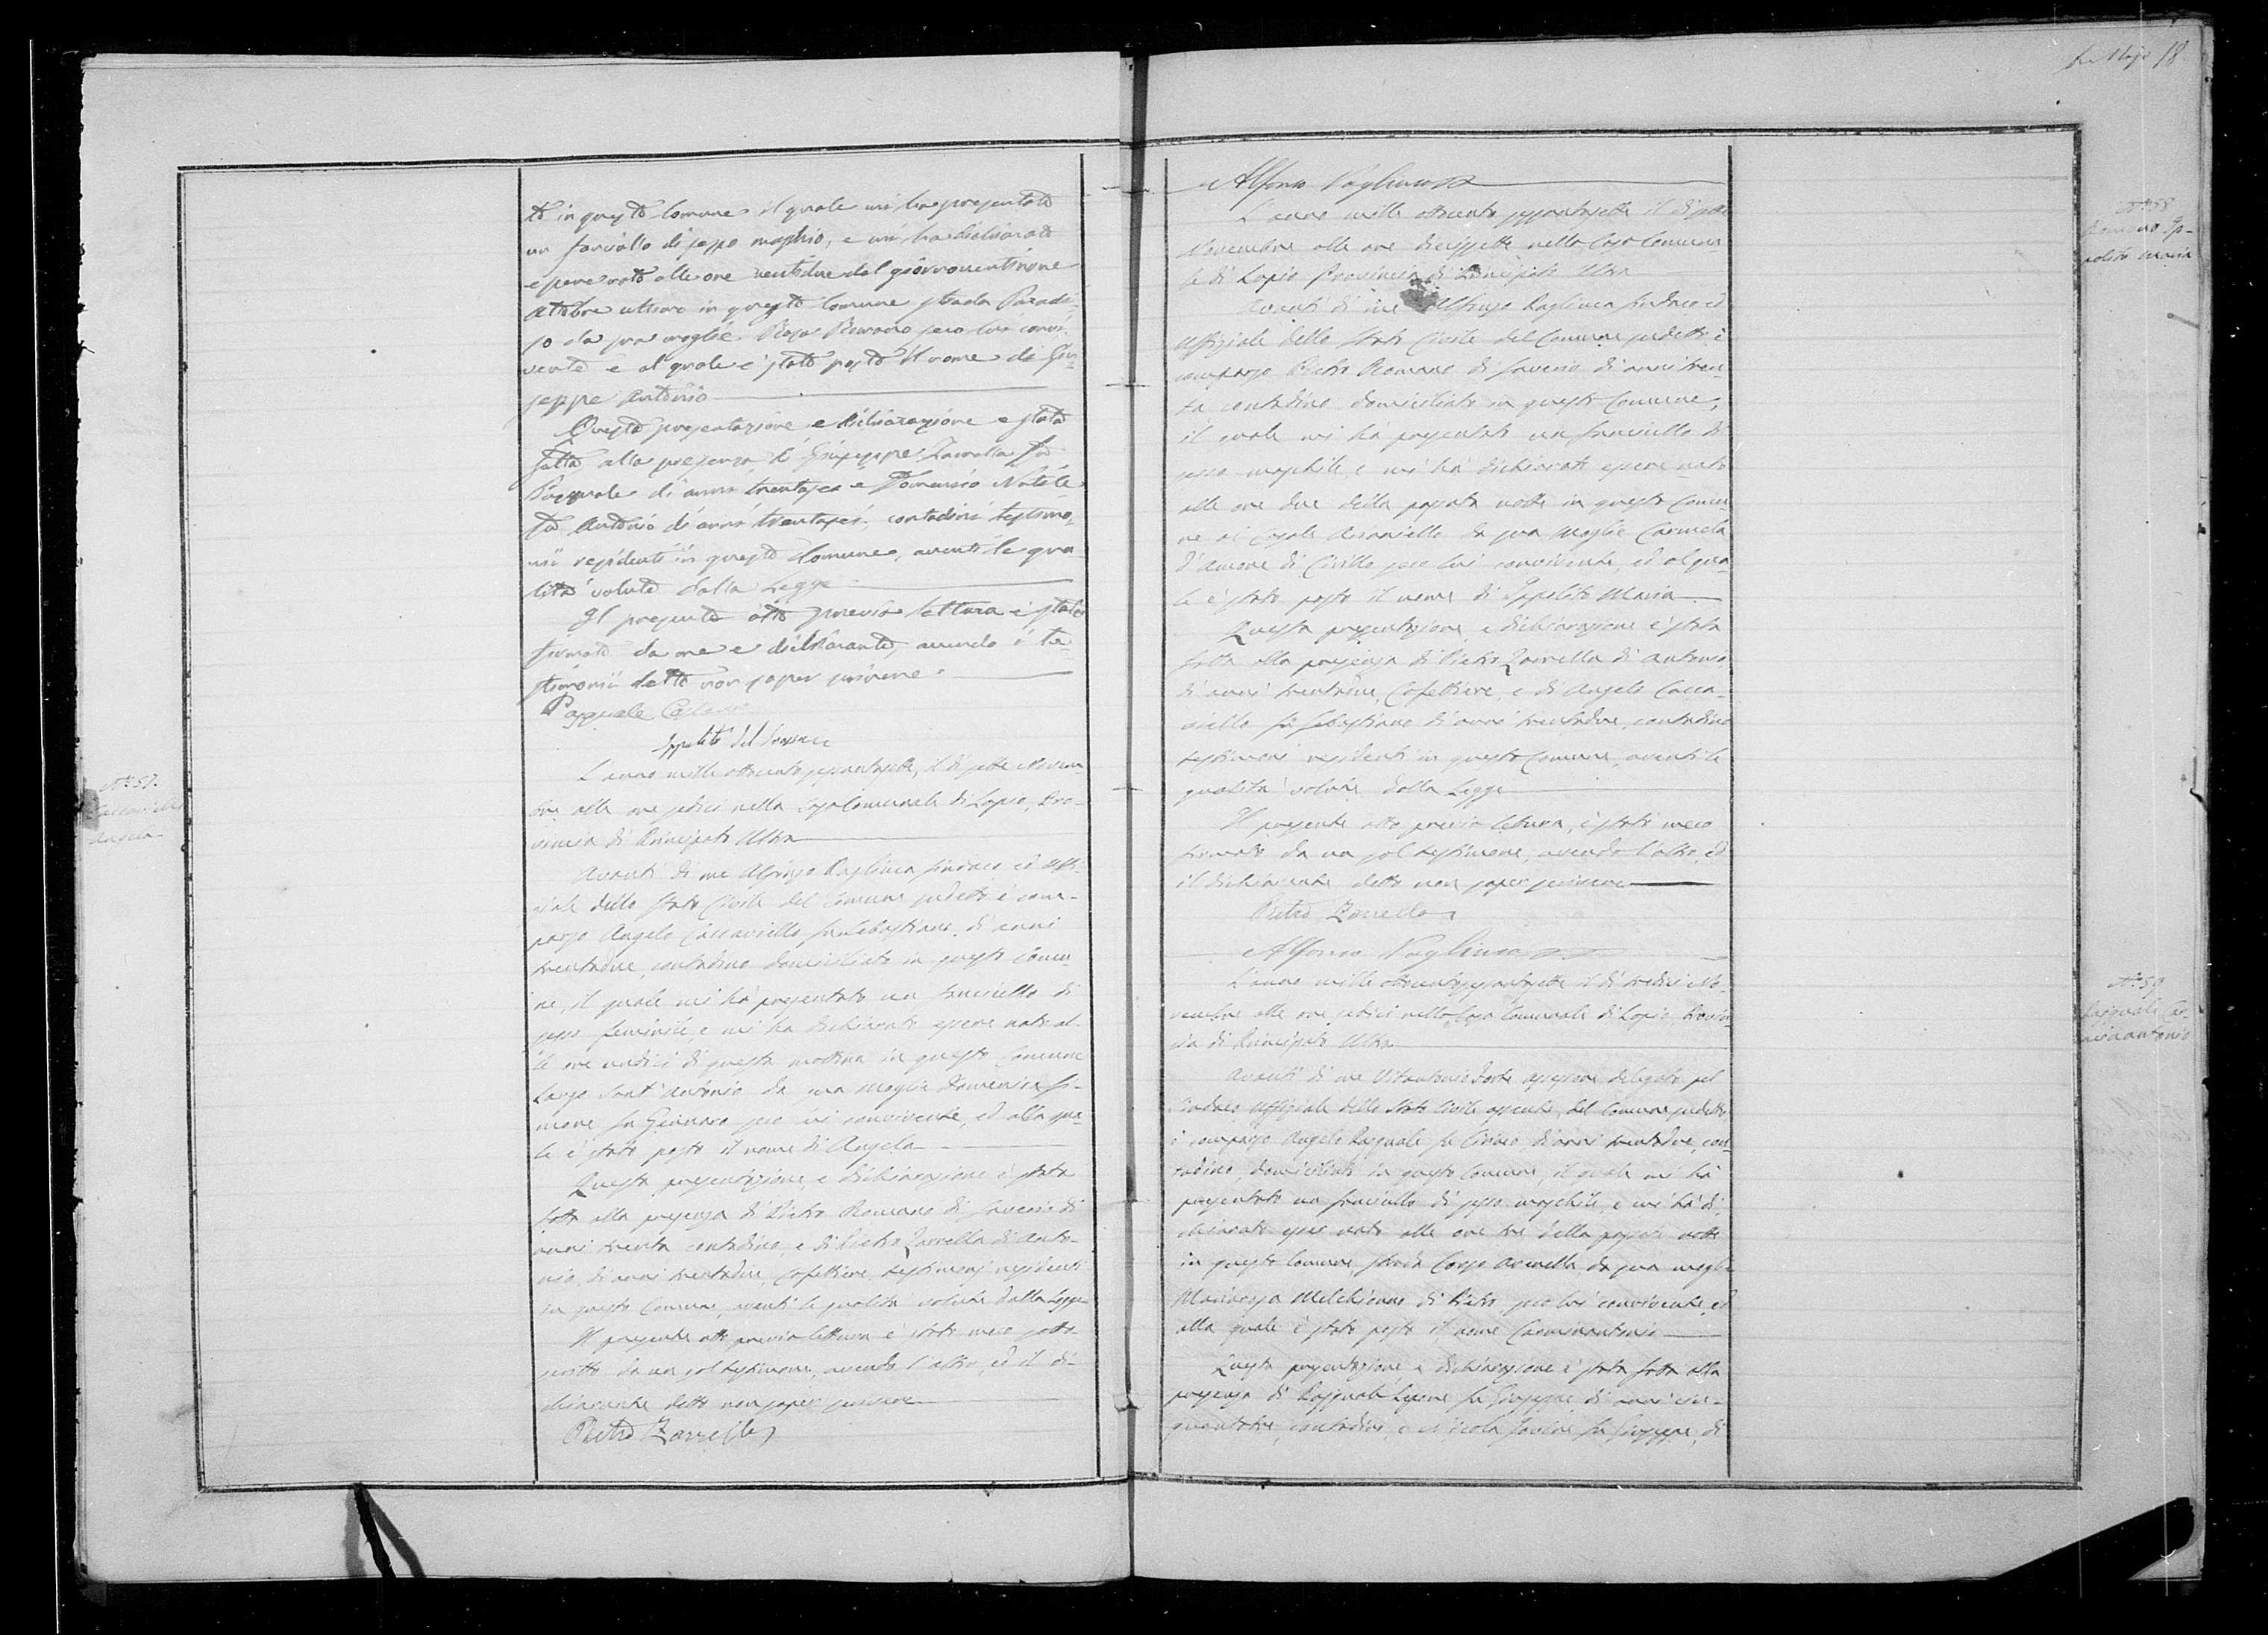 to in questo Comune il quale mi ha presentato
un fanciullo di sesso maschio, e mi ha dichiarato
essere nato alle ore ventidue del giorno ventinove
Ottobre ultimo in questo Comune strada Paradi-
so da sua moglie Rosa Romano seco lui convi-
vente e al quale è stato posto il nome di Giu-
seppe Antonio
Questa presentazione e dichiarazione e stata
fatta alla presenza di Giuseppe Zarrella fu
Pasquale di anni trentasei e Domenico Natale
fu Antonio di anni trentasei contadini testimo-
nii residenti in questo Comune, aventi le qua-
lità volute dalla Legge
Il presente atto previa lettura è stato
firmato da me e dichiarante, avendo i te-
stimonii detto non saper scrivere.
Pasquale
Ippolito del
N.° 57.
Angela
L'anno mille ottocento sessantasette, il dì sette Novem-
bre alle ore sedici nella Casa Comunale di Lapio, Pro-
vincia di Principato Ultra
Avanti di me Alfonso Vagliuca Sindaco ed Uffi-
ziale dello Stato Civile del Comune sudetto è com-
parso Angelo Caccaviello fu Sebastiano di anni
trentadue, contadino domiciliato in questo Comu-
ne, il quale mi ha presentato una fanciulla di
sesso feminile, e mi ha dichiarato essere nata al-
le ore undici di questa mattina in questo Comune
Largo Sant'Antonio da sua moglie Domenica Si-
mone fu Gennaro seco lui convivente, ed alla qua-
le è stato posto il nome di Angela
Questa presentazione, e dichiarazione è stata
fatta alla presenza di Pietro Romano di Saverio di
anni trenta contadino, e di Pietro Zarrella di Anto-
nio, di anni trentadue, Caffettiere, testimonj residenti
in questo Comune, aventi le qualità volute dalla Legge
Il presente atto previa lettura è stato meco sotto-
scritto da un sol testimone, avendo l'altro, ed il di-
chiarante detto non saper scrivere
Pietro Zarrella
18
Alfonso Vagliuca
N.° 58
Romano Ip-
polito Maria
L'anno mille ottocento sessantasette il dì sette
Novembre alle ore diecissette nella Casa Comuna-
le di Lapio Provincia di Principato Ultra
Avanti di me Alfonso Vagliuca Sindaco ed
Uffiziale dello Stato Civile del Comune sudetto è
comparso Pietro Romano di Saverio di anni tren-
ta contadino domiciliato in questo Comune,
il quale mi ha presentato un fanciullo di
sesso maschile, e mi ha dichiarato essere nato
alle ore due della passata notte in questo Comu-
ne al Casale da sua moglie Carmela
D'Amore di Cirillo seco lui convivente, ed al qua-
le è stato posto il nome di Ippolito Maria
Questa presentazione, e dichiarazione è stata
fatta alla presenza di Pietro Zarrella di Antonio
di anni trentadue, Caffettiere, e di Angelo Cacca-
viello fu Sebastiano di anni trentadue, contadino
testimoni residenti in questo Comune, aventi le
qualità volute dalla Legge
Il presente atto previa lettura, è stato meco
firmato da un sol testimone, avendo l'altro, ed
il dichiarante detto non saper scrivere
Pietro Zarrella
Alfonso Vagliuca
N.° 59
Pasquale Car-
minantonio
L'anno mille ottocentosessantasette il dì tredici No-
vembre alle ore sedici nella Casa Comunale di Lapio, Provin-
cia di Principato Ultra
Avanti di me Vitantonio Forte assessore delegato pel
Sindaco Uffiziale dello Stato Civile assente, del Comune sudetto
è comparso Angelo Pasquale fu di anni trentadue, con-
tadino, domiciliato in questo Comune, il quale mi ha
presentato un fanciullo di sesso maschile, e mi ha di-
chiarato esser nato alle ore tre della passata notte
in questo Comune strada Corso da sua moglie
Mariarosa Melchionno di Pietro, seco lui convivente, ed
alla quale è stato posto il nome Carminantonio
Questa presentazione e dichiarazione è stata fatta alla
presenza di Pasquale fu Giuseppe di anni cin-
quantatre, contadino, e Nicola fu Giuseppe, di